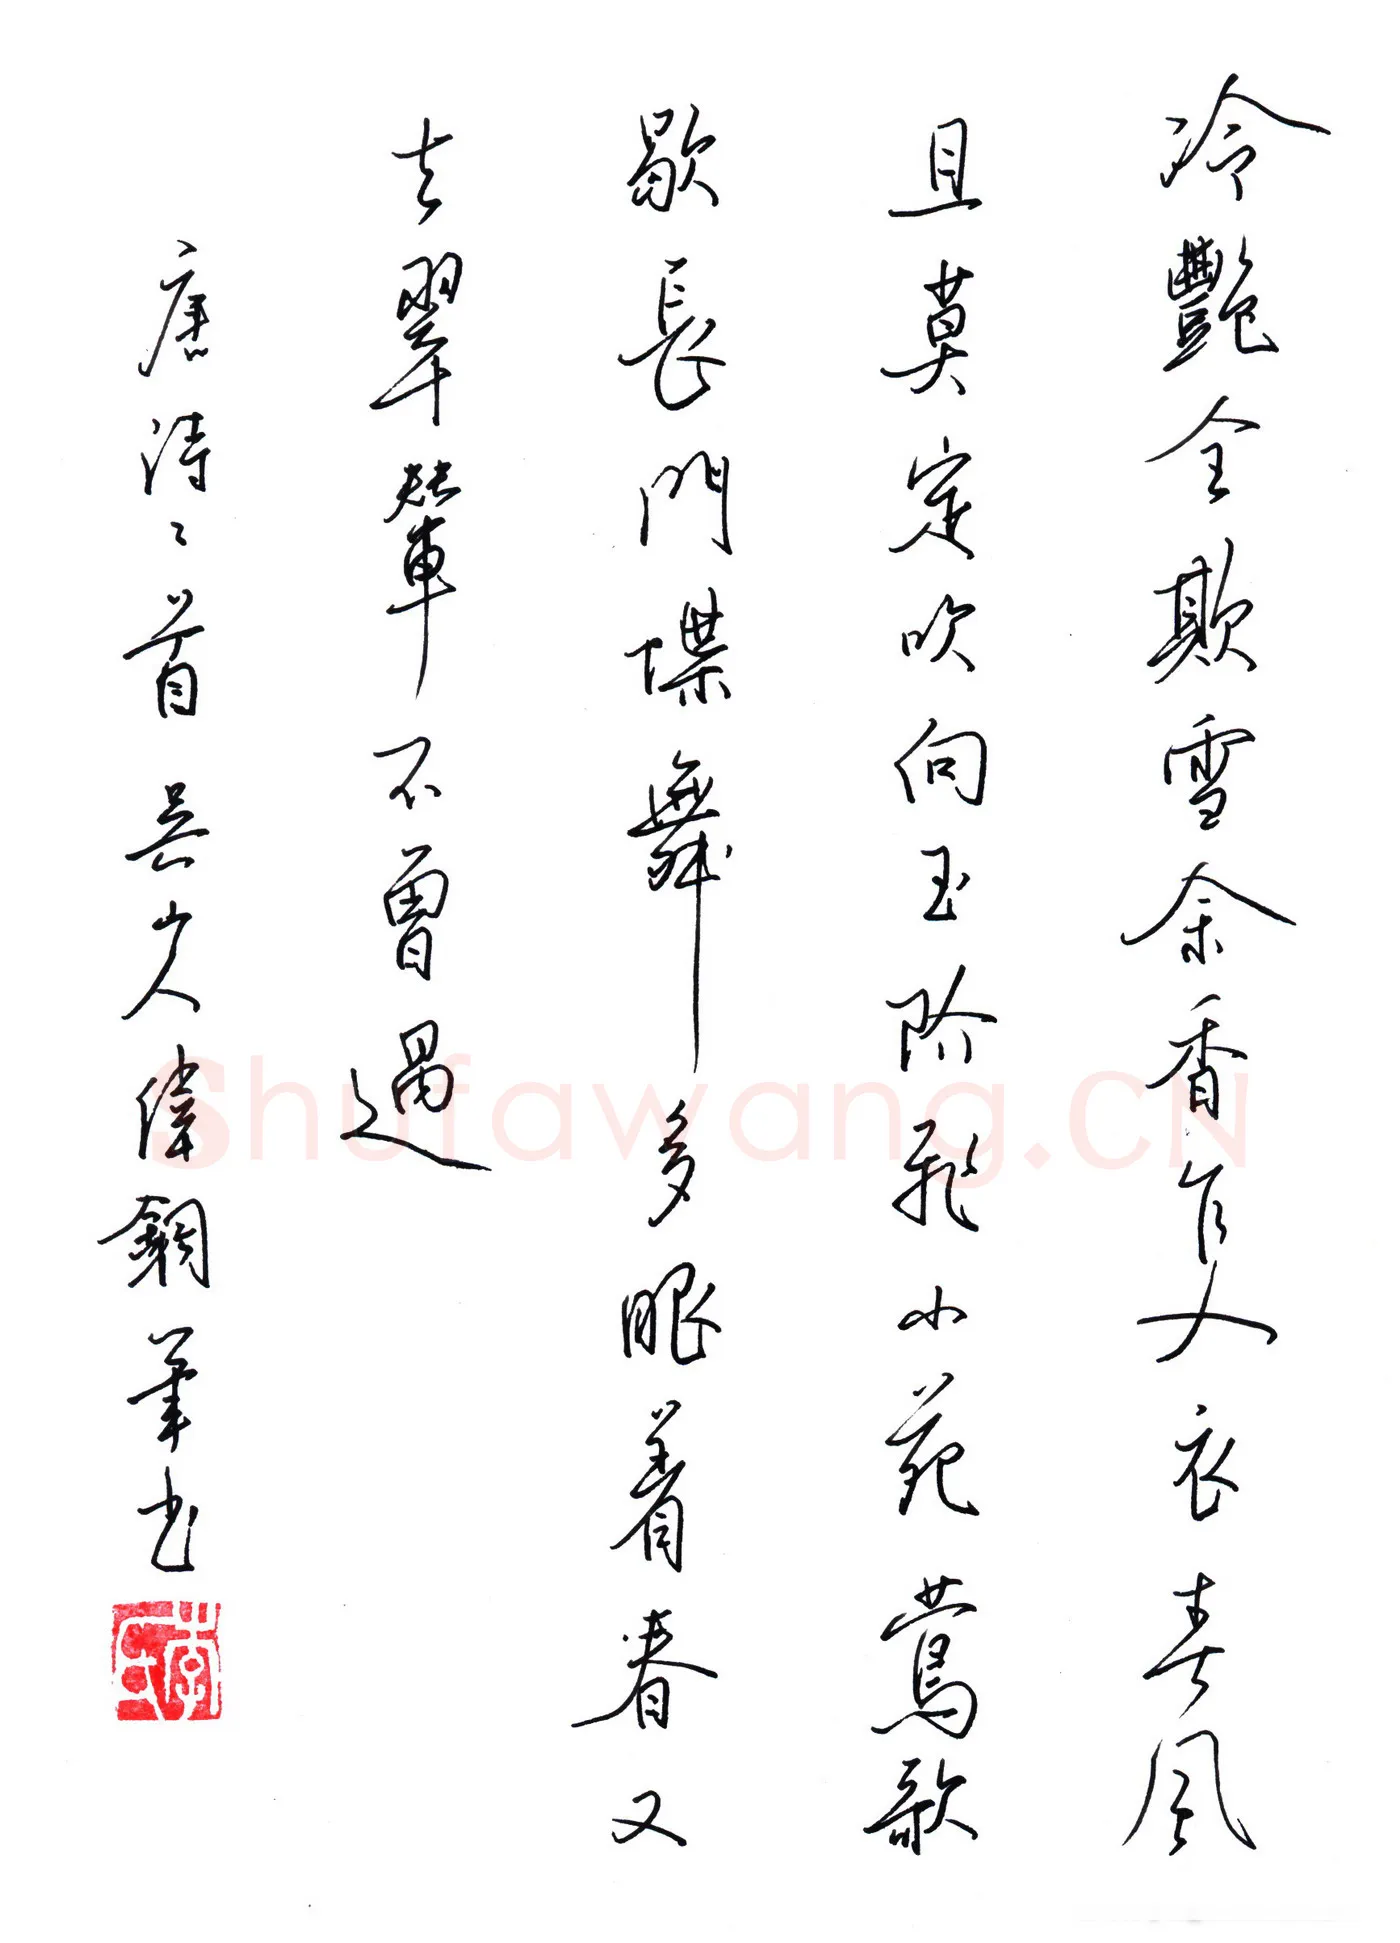 冷艷全欺雪余香乍入衣春風
且莫定吹向玉阶飛小苑莺歌
歇長門蝶舞多眼看春又
去翠輦不曾過
唐诗二首吴少人偉鋼筆书
李氏
Shufawang.CN